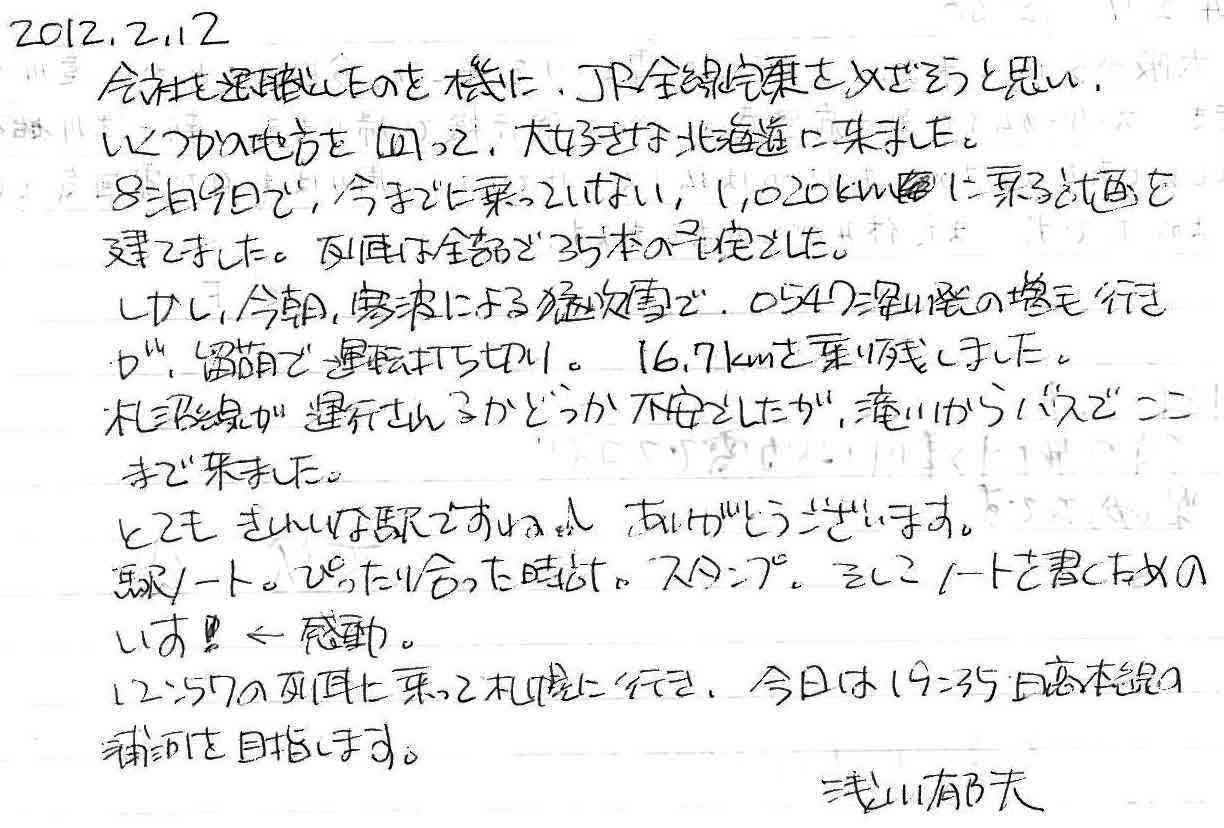 2012.2.12
会社を退職したのを機に、JR全線完乗をめざそうと思い、
いくつかの地方を回って、大好きな北海道に来ました。
8泊9日で、今までに乗っていない、1,020kmに乗る計画を
建てました。列車は全部で35本の予定でした。
しかし、今朝、寒波による猛吹雪で、0547深川発の増毛行き
が、留萌で運転打ち切り。16.7kmを乗り残しました。
札沼線が運行されるかどうか不安でしたが、滝川からバスでここ
まで来ました。
とても きれいな駅ですね。 ありがとうございます。
駅ノート。ぴったり合った時計。スタンプ。そしてノートを書くための
いす!! ← 感動。
12:57の列車に乗って札幌に行き、今日は19:35日高本線の
浦河を目指します。
浅川郁夫